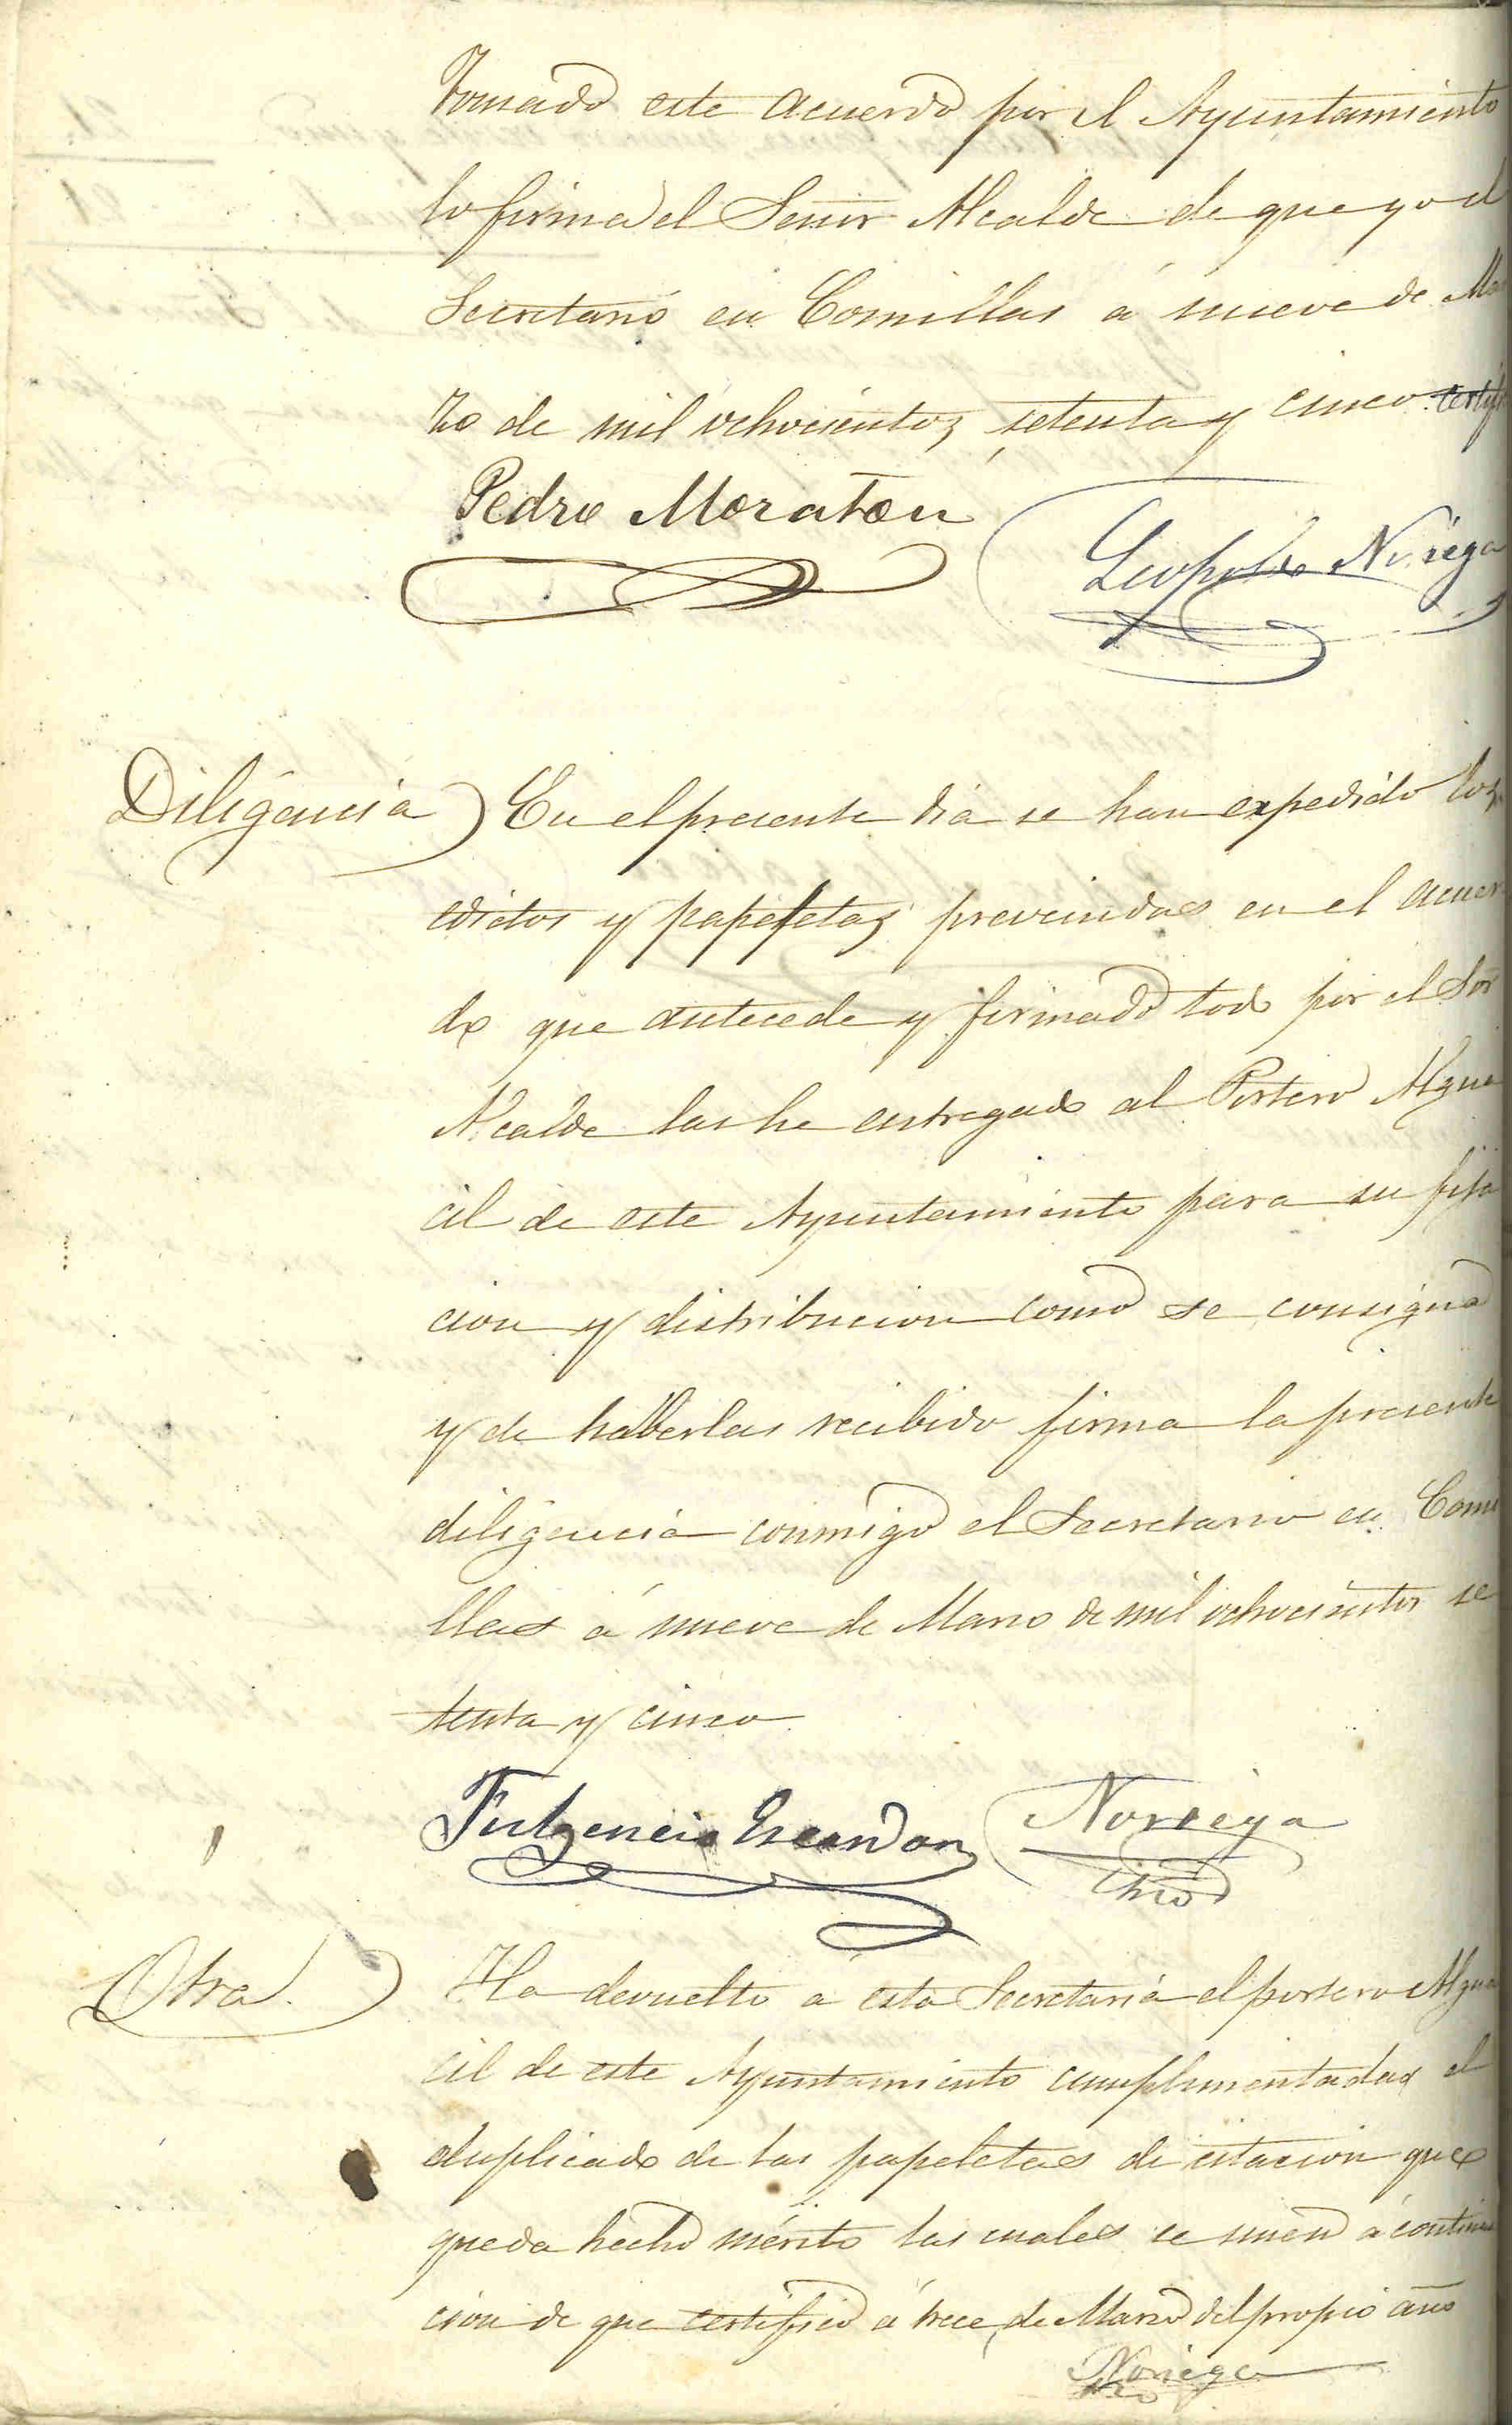 tomado este acuerdo por el Ayuntamiento
lo firma el Señor Alcalde de que yo el
Secretario en Comillas á nueve de Mar
zo de mil ochocientos setenta y cinco certif
Pedro Moraton
Leopoldo Noriega
Diligencia) En el presente dia se han expedido los
edictos y papeletas prevenidas en el acuer
do que antecede y firmado todo por el Sor
Alcalde las he entregado al Portero Algua
cil de este Ayuntamiento para su fija
cion y distribucion como se consigna
y de haberlas recibido firma la presente
diligencia conmigo el Secretario en Comi
llas á nueve de Marzo de mil ochocientos se
tenta y cinco
Fulgencio Escandon Noriega
Srio
Otra.) Ha devuelto á esta Secretaria el portero Algua
cil de este Ayuntamiento cumplimentadas el
duplicado de las papeletas de citacion que
queda hecho mérito las cuales se unen á continua
cion de que certifico á trece de Marzo del propio año
Noriega
Srio